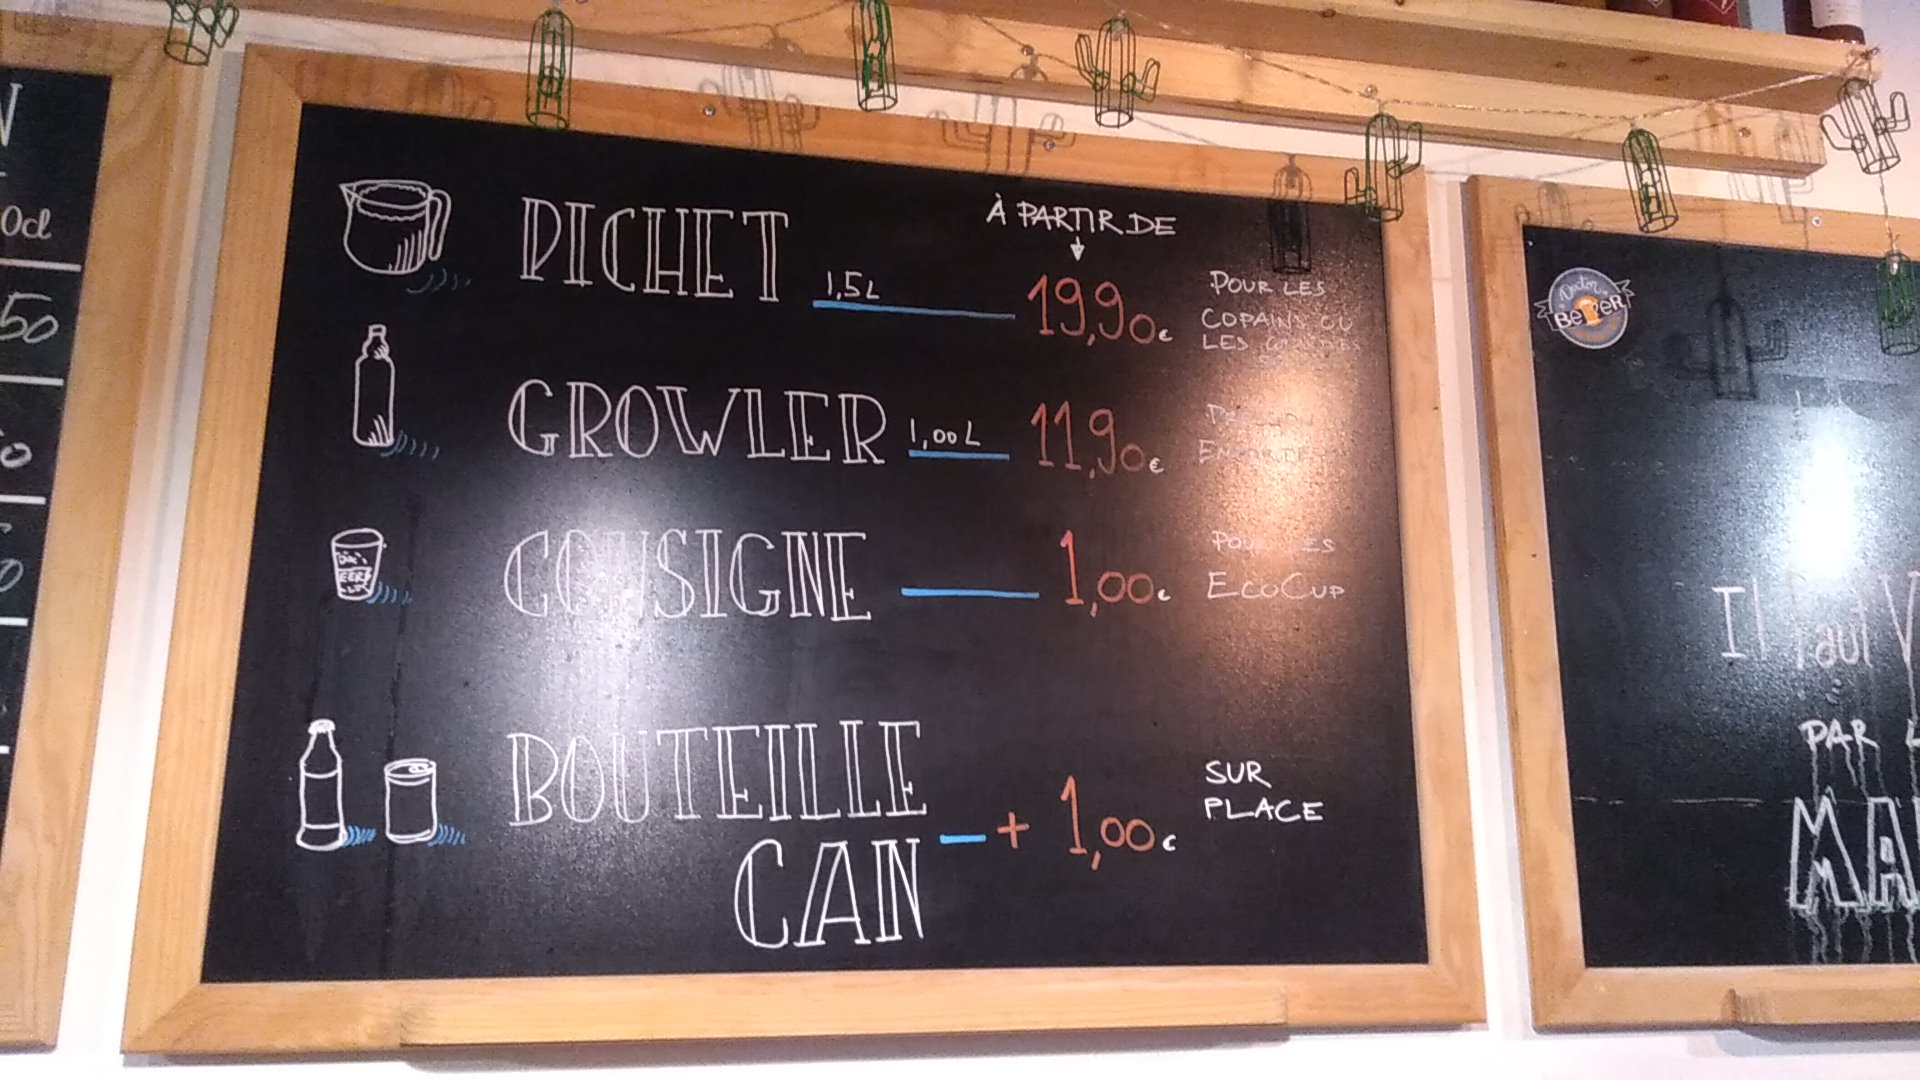 PICHET 1,5L À PARTIR DE 19,90€
POUR LES
COPAINS OU
LES
GROWLER 1,00L 11,90€
CONSIGNE 1,00€
POUR LES
ECOCUP
BOUTEILLE
CAN + 1,00€
SUR
PLACE
0cl
50
Doctor
BeeR
Il Faut
PAR
MA